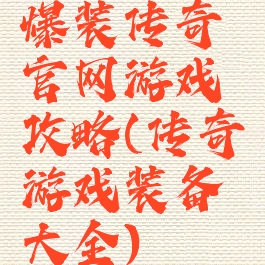 爆装传奇
官网游戏
攻略(传奇
游戏装备
大全)